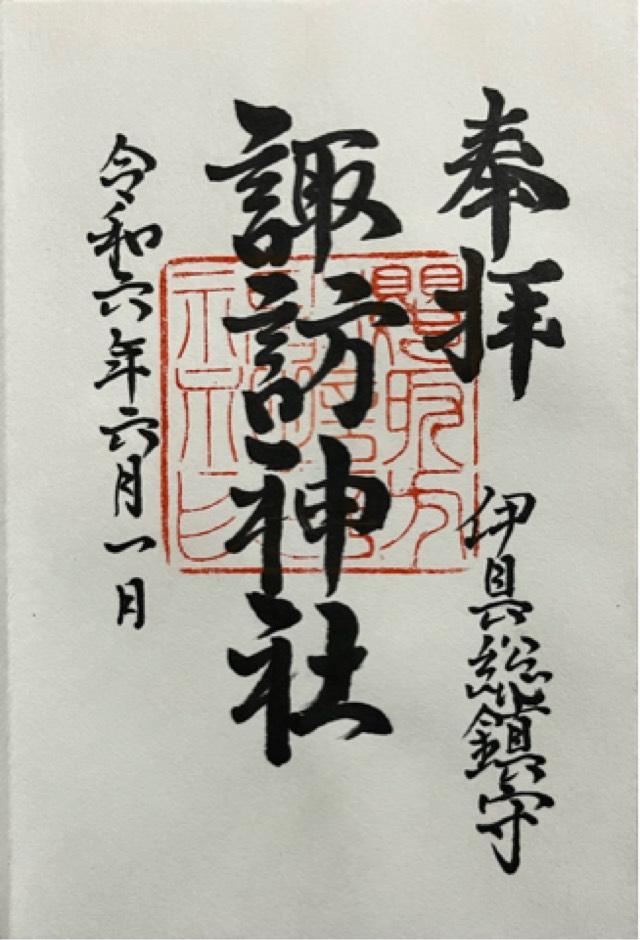 奉拝
伊具総鎮守
諏訪神社
令和六年六月一日